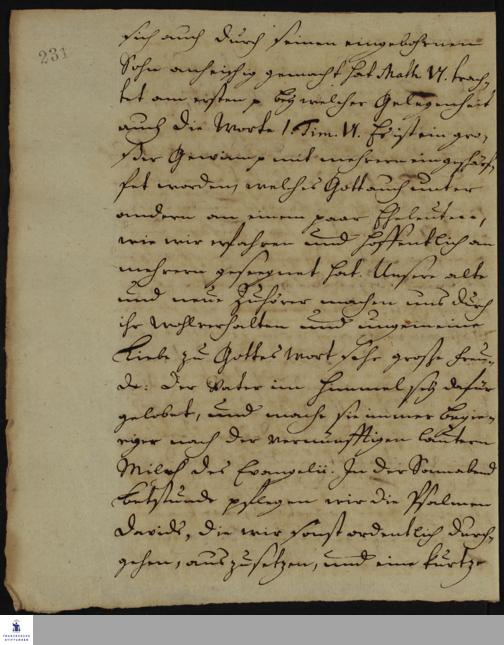 231
sich auch durch seinen eingebohrnen
Sohn anheischig gemacht hat Matth. VI. trach-
tet am ersten p bey welcher Gelegenheit
auch die Worte 1. Tim. VI. Es ist ein gro-
ßer Gewinn p mit mehrern eingeschärf-
fet worden, welches Gott auch unter
andern an einem paar Eheleuten,
wie wir erfahren und hoffentlich an
mehrern geseegnet hat. Unsere alte
und neue Zuhörer machen uns durch
ihr Wohlverhalten und ungemeine
Liebe zu Gottes Wort sehr große Freu-
de: Der Vater im Himmel sey dafür
gelobet, und mache sie immer begie-
riger nach der vernünfftigen lautern
Milch des Evangelii. In der Sonnabend
Betstunde pflegen wir die Psalmen
Davids, die wir sonst ordentlich durch-
gehen, auszusetzen, und eine kurtze
FRANCKESCHE
STIFTUNGEN